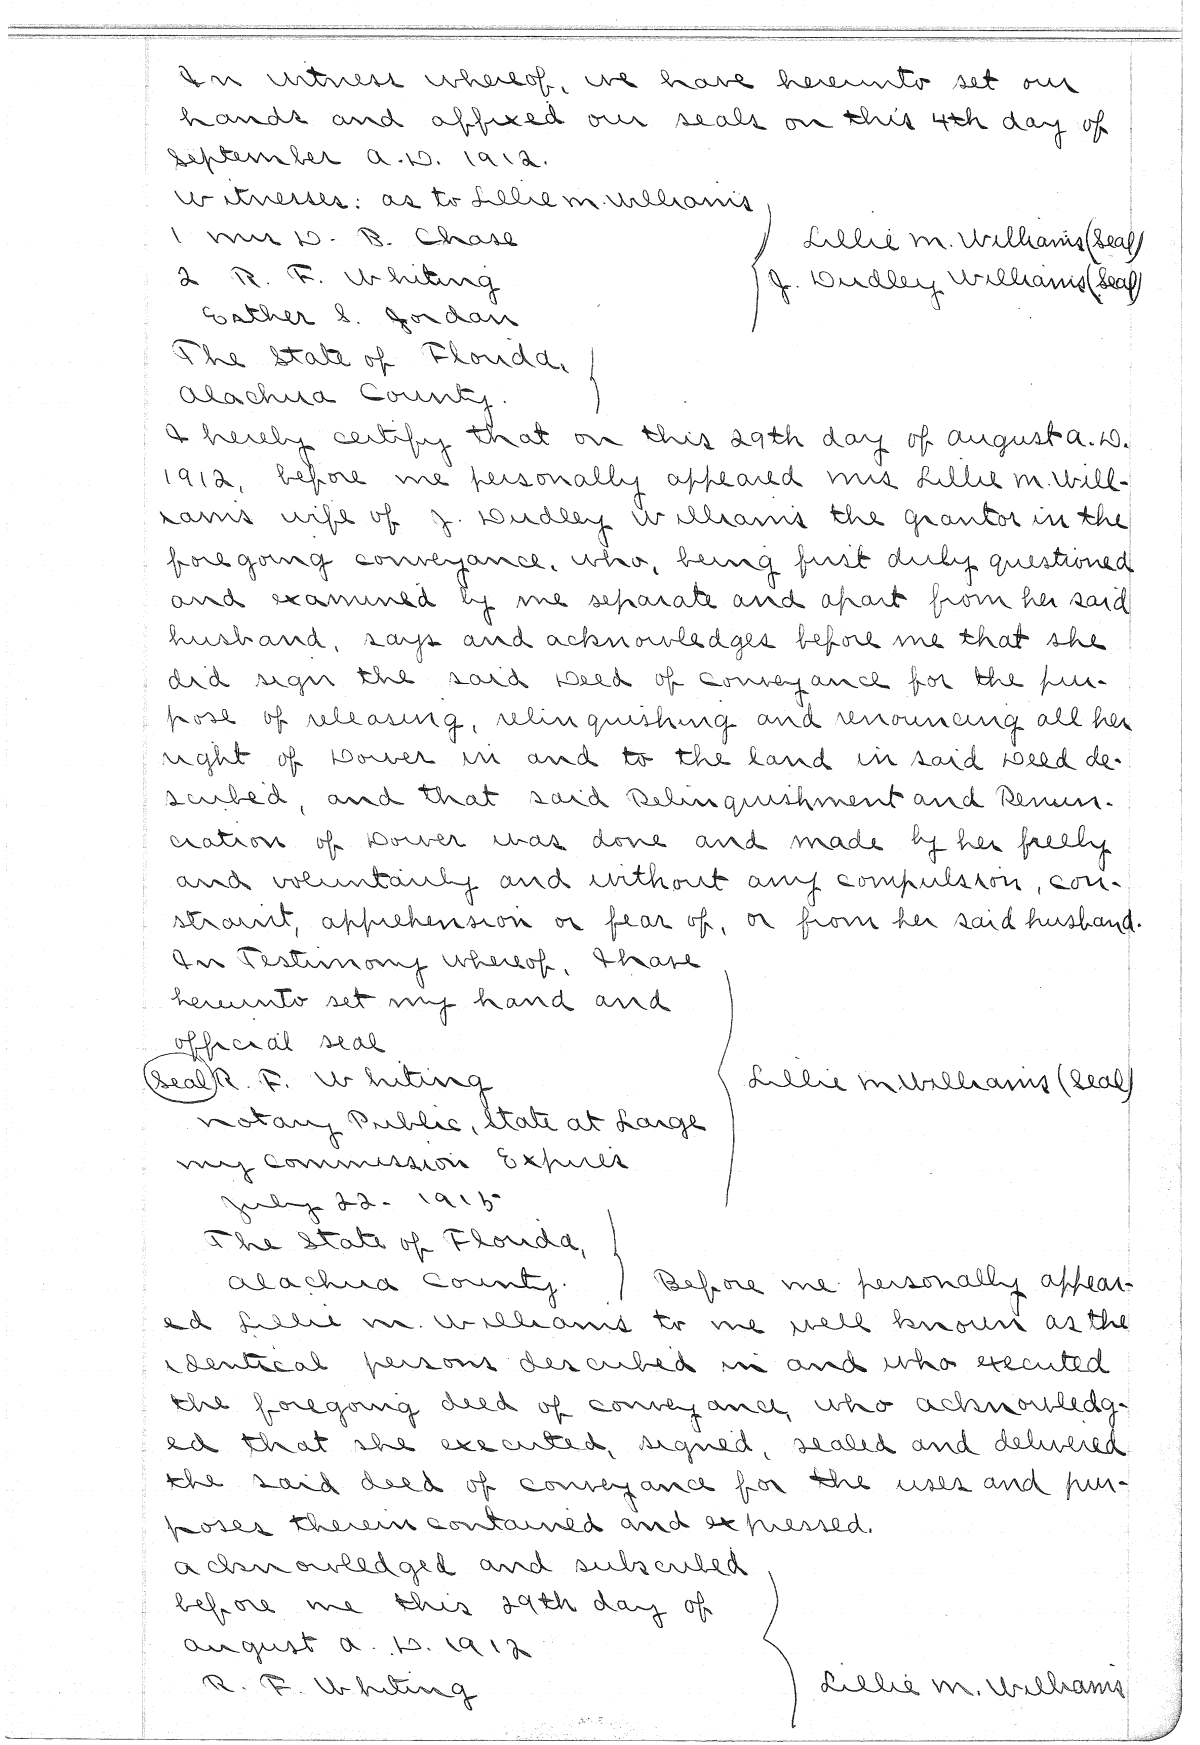 In witness whereof, we have hereunto set our
hands and affixed our seals on this 4th day of
September A.D. 1912.
Witnesses: as to Lillie M. Williams
1 Mrs D. B. Chase
Lillie M. Williams (Seal)
2 R. F. Whiting
J. Dudley Williams (Seal)
Esther S. Jordan
The State of Florida,
Alachua County.
I hereby certify that on this 29th day of August A.D.
1912, before me personally appeared Mrs Lillie M. Will-
iams wife of J. Dudley Williams the grantor in the
foregoing conveyance, who, being first duly questioned
and examined by me separate and apart from her said
husband, says and acknowledges before me that she
did sign the said Deed of Conveyance for the pur-
pose of releasing, relinquishing and renouncing all her
right of Dower in and to the land in said Deed de-
scribed, and that said Relinquishment and Renun-
ciation of Dower was done and made by her freely
and voluntarily and without any compulsion, con-
straint, apprehension or fear of, or from her said husband.
In Testimony whereof, I have
hereunto set my hand and
official seal
(Seal) R. F. Whiting
Lillie M Williams (Seal)
Notary Public, State at Large
My Commission Expires
July 22 - 1915
The State of Florida,
Alachua County. Before me personally appear-
ed Lillie M. Williams to me well known as the
identical persons described in and who executed
the foregoing deed of conveyance, who acknowledg-
ed that she executed, signed, sealed and delivered
the said deed of conveyance for the uses and pur-
poses therein contained and expressed.
Acknowledged and subscribed
before me this 29th day of
August A.D. 1912
R. F. Whiting
Lillie M. Williams